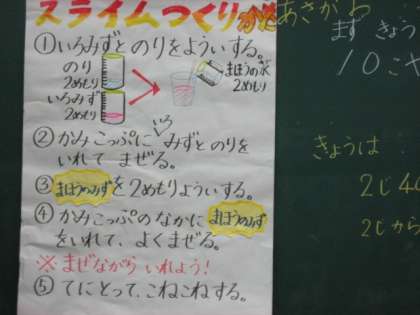 スライムつくりかた
①いろみずとのりをようい する。
のり
2めもり
いろみず
2めもり
まほうの水
2めもり
②かみこっぷに いろみずとのりを
いれて まぜる。
③まほうのみずを2めもりようい する。
④かみこっぷのなかに まほうのみず
をいれて、よくまぜる。
※まぜながら いれよう!
⑤てにとって、こねこねする。
あさがお
まず きょう
10こ
きょうは
2じ40
2じから